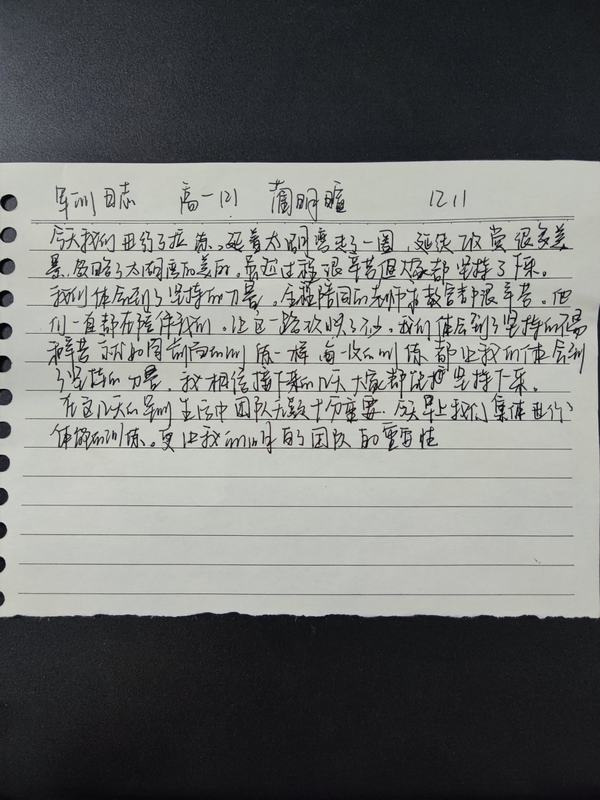 军训日志 高一(2) 蔺明暄 12.11
今天我们进行了拉练。延着太湖湾走了一圈,延途欣赏很多美
景,领略了太湖湾的美白,虽过过程很辛苦但大家都坚持了下来。
我们体会到了坚持的力量,全程陪同的老师和教官都很辛苦。他
们一直都在陪伴我们,让这一路欢快了不少。我们体会到了坚持的不易
和辛苦 就如同前面的训练一样 每一次的训练都让我们体会到
了坚持的力量,我相信接下来的几天大家都能坚持下来。
在这几天的军训生活中团队尤其十分重要,今天早上我们集体进行
体能的训练。更让我们明白了团队的重要性